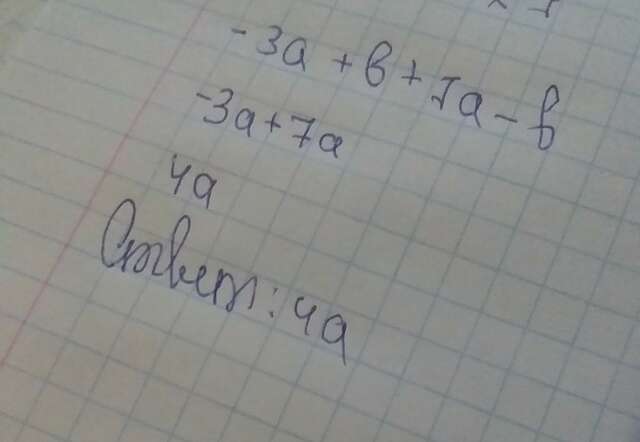 -3a + в + 7a - в
-3a + 7a
4a
Ответ: 4a